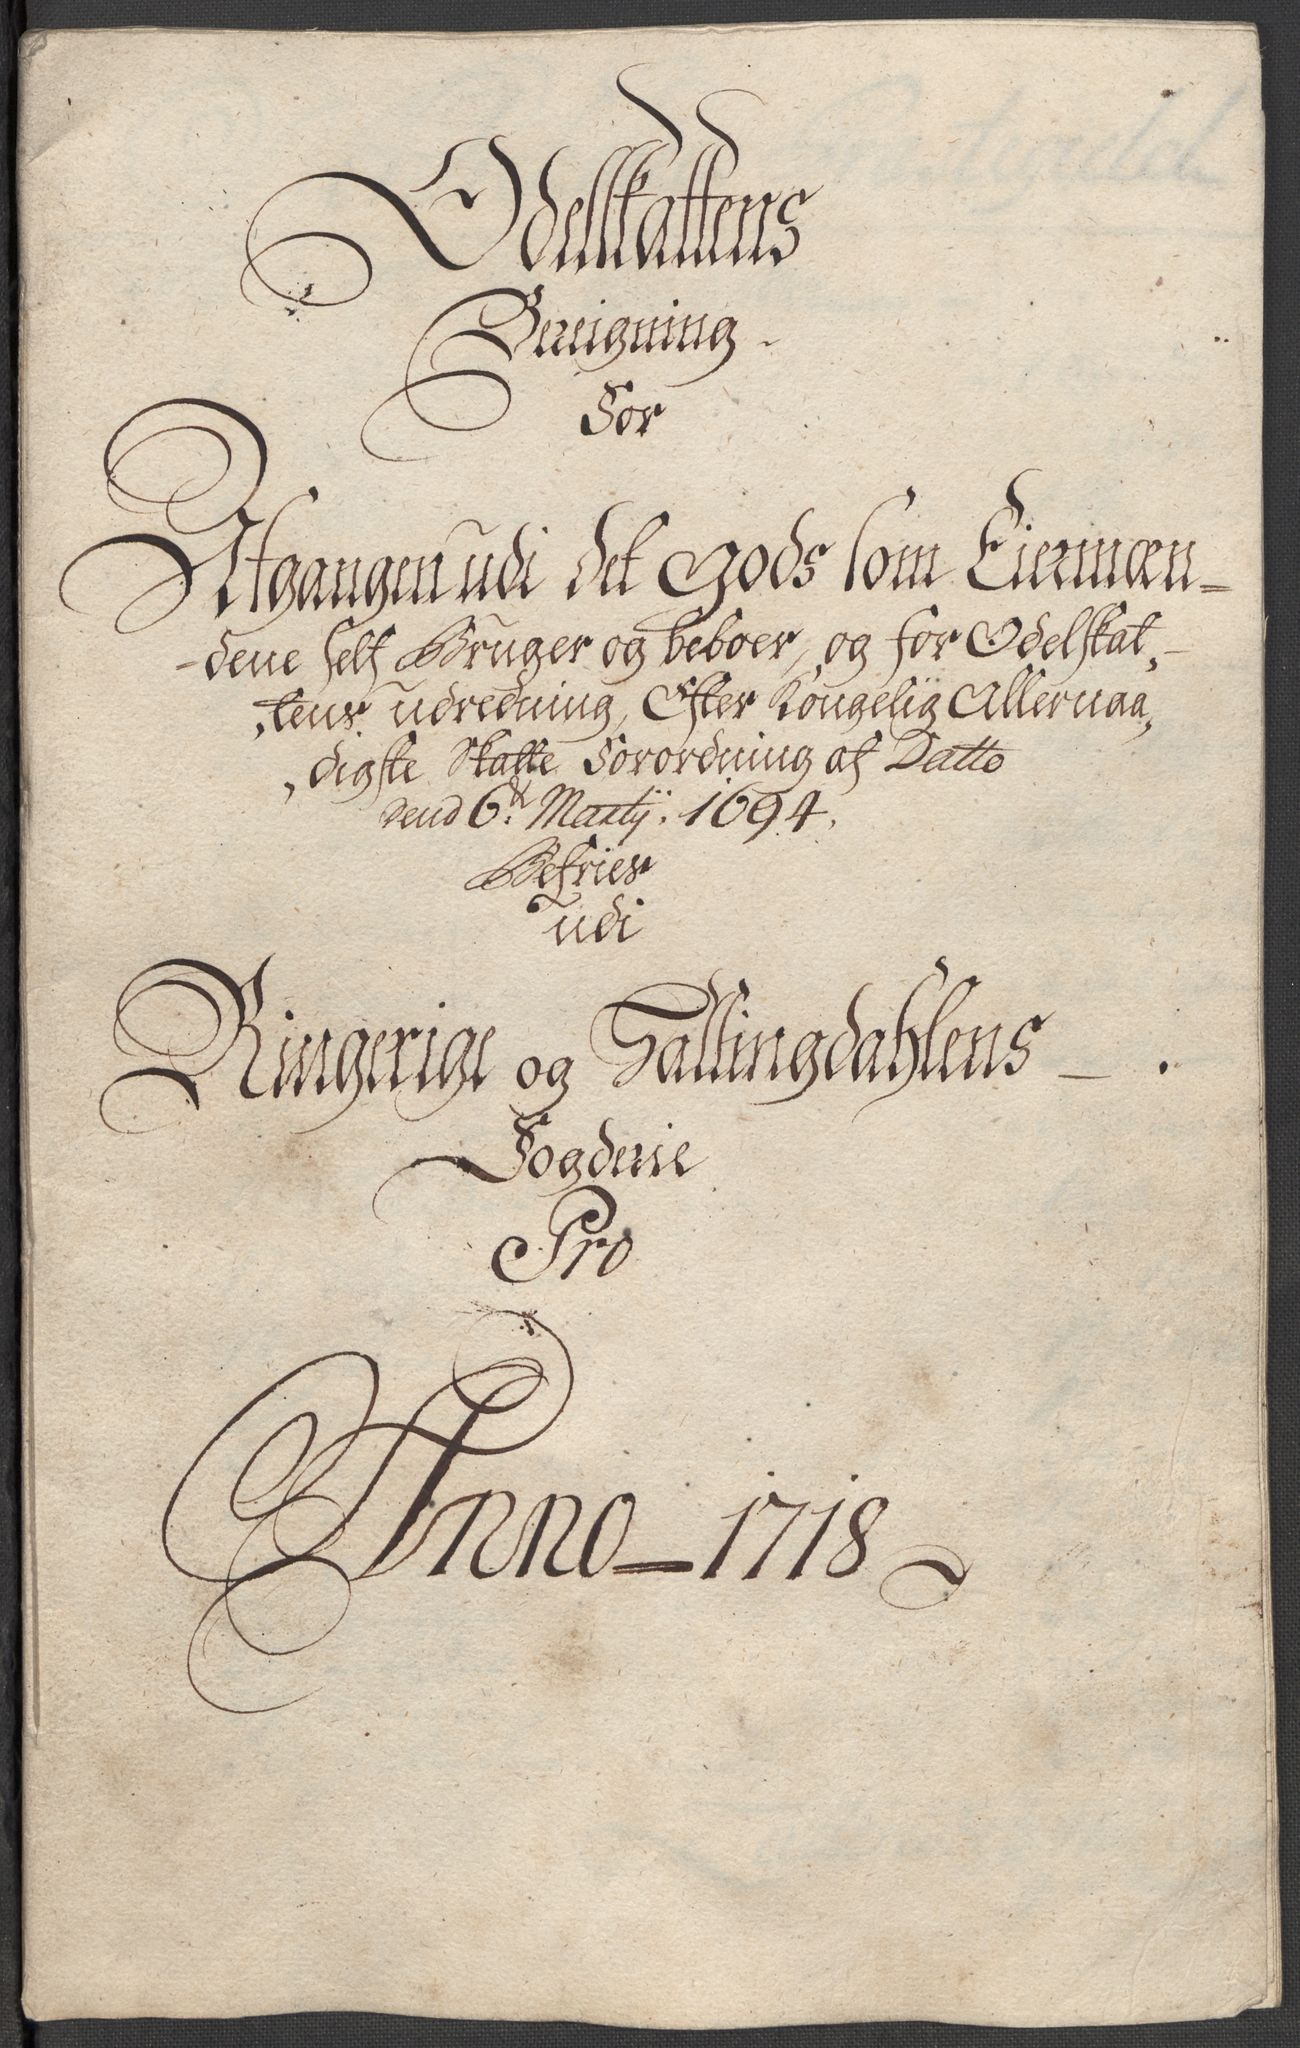 Odelskattens
Bereigning
for
Afgangen udi det Gods som Eiermæn-
-dene self Bruger og beboer, og for Odelskat,
,tens udredning, Efter Kongelig Allernaa,
,digste Skatte forordning af Datto
dend 6te Martij. 1694.
Befries
udi
Ringerige og Hallingdahlens
Fogderie
Pro
Anno 1718